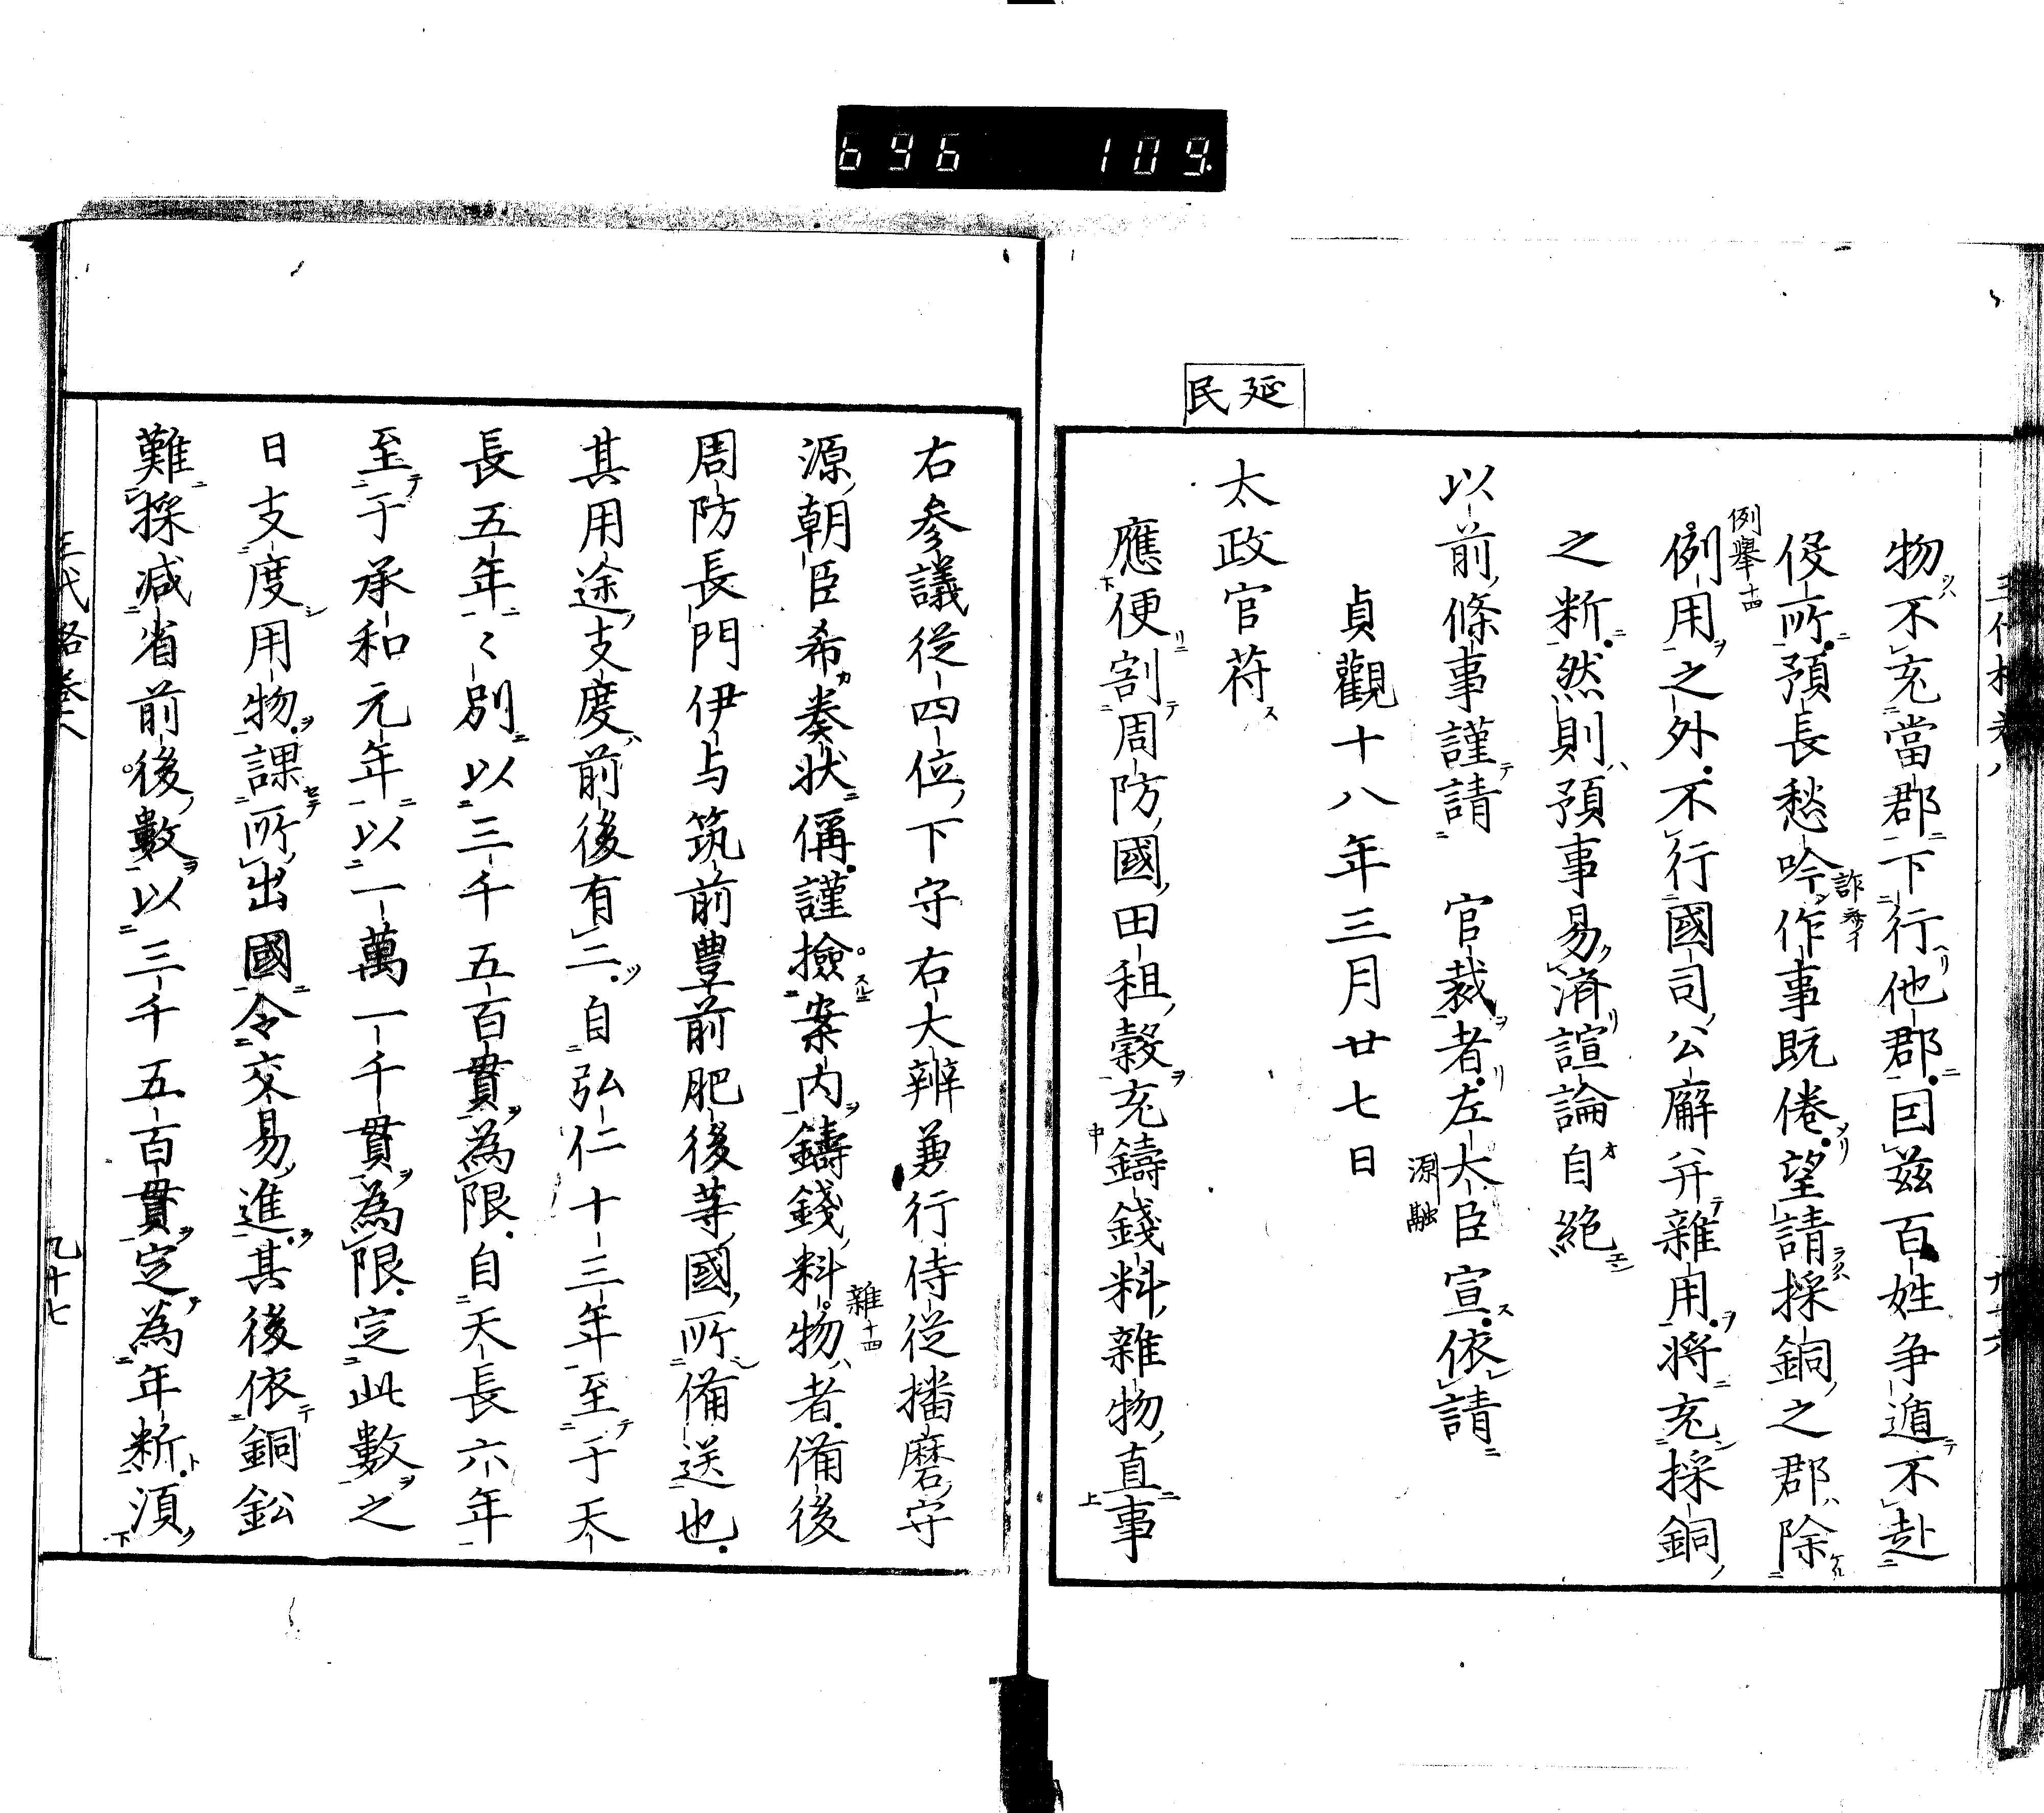 696 109
延民
物不充當郡下行他郡因兹百姓争遁不赴
役所預長愁吟作事既倦望請採銅之郡除
例用之外不行國司公廨并雜用将充採銅
例舉十四
之新然則預事易済諠論自絶
以前條事謹請 官裁者左大臣宣依請
源融
貞觀十八年三月廿七日
太政官苻
應便割周防國田租穀充鑄錢料雜物直事
右參議從四位下守右大辨兼行侍從播磨守
源朝臣希奏状偁謹撿案內鑄錢料物者備後
雜十四
周防長門伊与筑前豊前肥後等國所備送也
其用途支度前後有二自弘仁十三年至于天
長五年〻別以三千五百貫為限自天長六年
至于承和元年以一萬一千貫為限定此數之
日支度用物課所出國令交易進其後依銅鈆
難採減省前後數以三千五百貫定為年新湏
三代格卷八
九十七